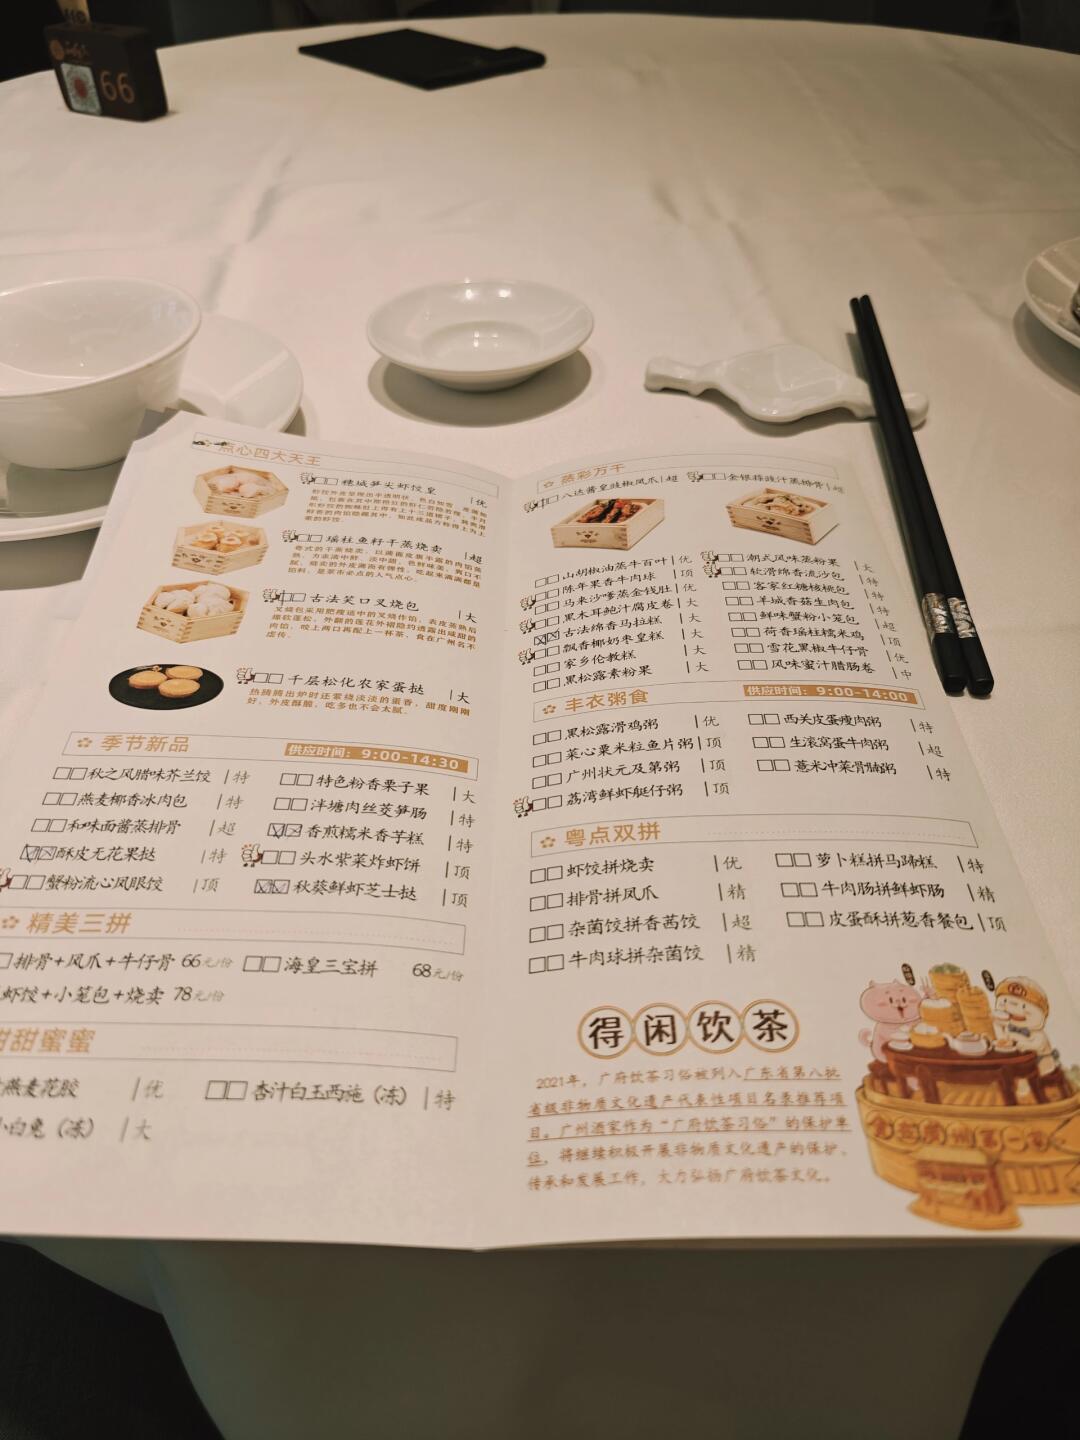 66
点心四大天王
穗城笋尖虾饺皇 | 优
瑶柱鱼籽干蒸烧卖 | 超
古法笑口叉烧包 | 大
千层松化农家蛋挞 | 大
热腾腾出炉时还萦绕淡淡的蛋香,甜度刚刚
好,外皮酥脆,吃多也不会太腻。
季节新品 供应时间:9:00-14:30
秋之风腊味芥兰饺 | 特
特色粉香栗子果 | 大
燕麦椰香冰肉包 | 特
泮塘肉丝茭笋肠 | 特
和味面酱蒸排骨 | 超
香煎糯米香芋糕 | 特
酥皮无花果挞 | 特
头水紫菜炸虾饼 | 顶
蟹粉流心凤眼饺 | 顶
秋葵鲜虾芝士挞 | 顶
精美三拼
排骨+凤爪+牛仔骨 66元/份
海皇三宝拼 68元/份
虾饺+小笼包+烧卖 78元/份
甜甜蜜蜜
燕麦花胶 | 优
杏汁白玉西施(冻) | 特
小白兔(冻) | 大
蒸彩万千
八达酱皇豉椒凤爪 | 超
金银蒜豉汁蒸排骨 | 超
山胡椒油蒸牛百叶 | 优
潮式风味蒸粉果 | 大
陈年果香牛肉球 | 顶
软滑绵香流沙包 | 特
马来沙嗲蒸金钱肚 | 优
客家红糖核桃包 | 特
黑木耳鲍汁腐皮卷 | 大
羊城香菇生肉包 | 特
古法绵香马拉糕 | 大
鲜味蟹粉小笼包 | 超
飘香椰奶枣皇糕 | 大
荷香瑶柱糯米鸡 | 顶
家乡伦教糕 | 大
雪花黑椒牛仔骨 | 优
黑松露素粉果 | 大
风味蜜汁腊肠卷 | 中
丰衣粥食 供应时间:9:00-14:00
黑松露滑鸡粥 | 优
西关皮蛋瘦肉粥 | 特
菜心粟米粒鱼片粥 | 顶
生滚窝蛋牛肉粥 | 超
广州状元及第粥 | 顶
薏米冲菜骨腩粥 | 特
荔湾鲜虾艇仔粥 | 顶
粤点双拼
虾饺拼烧卖 | 优
萝卜糕拼马蹄糕 | 特
排骨拼凤爪 | 精
牛肉肠拼鲜虾肠 | 精
杂菌饺拼香茜饺 | 超
皮蛋酥拼葱香餐包 | 顶
牛肉球拼杂菌饺 | 精
得闲饮茶
2021年,广府饮茶习俗被列入广东省第八批
省级非物质文化遗产代表性项目名录推荐项
目。广州酒家作为“广府饮茶习俗”的保护单
位,将继续积极开展非物质文化遗产的保护、
传承和发展工作,大力弘扬广府饮茶文化。
食在广州第一家